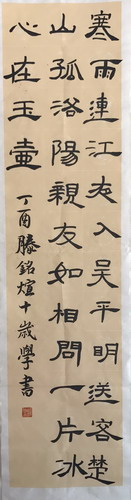 寒雨連江夜入吳平明送客楚
山孤洛陽親友如相問一片冰
心在玉壺
丁酉滕銘煊十歲學書